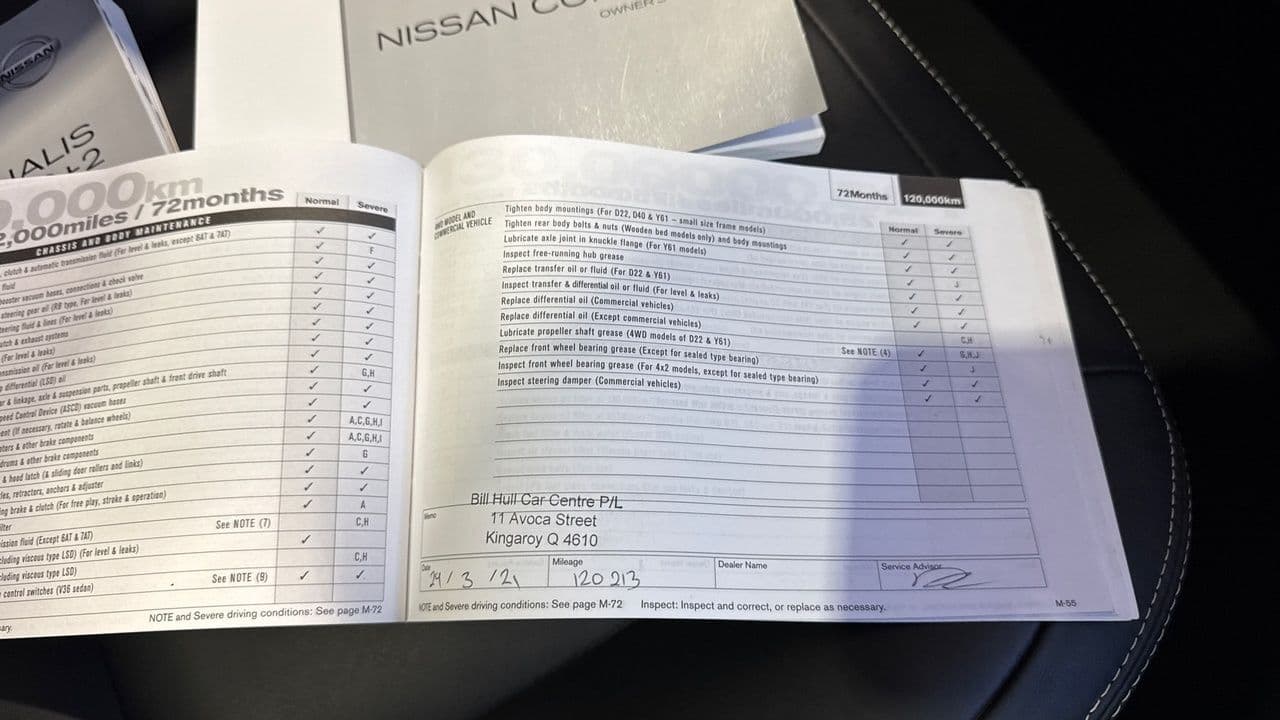 NISSAN
IALIS
+2
NISSAN CO
OWNER'S
,000km
2,000miles / 72months
Normal Severe
CHASSIS AND BODY MAINTENANCE
, clutch & automatic transmission fluid (For level & leaks, except 6AT & 7AT) ✓ ✓
fluid ✓ F
booster vacuum hoses, connections & check valve ✓ ✓
steering gear oil (RB type, For level & leaks) ✓ ✓
teering fluid & lines (For level & leaks) ✓ ✓
utch & exhaust systems ✓ ✓
(For level & leaks) ✓ ✓
ansmission oil (For level & leaks) ✓ ✓
p differential (LSD) oil ✓ ✓
ar & linkage, axle & suspension parts, propeller shaft & front drive shaft ✓ G,H
peed Control Device (ASCD) vacuum hoses ✓ ✓
ent (If necessary, rotate & balance wheels) ✓ ✓
oters & other brake components ✓ A,C,G,H,I
drums & other brake components ✓ A,C,G,H,I
& hood latch (& sliding door rollers and links) ✓ G
les, retractors, anchors & adjuster ✓ ✓
ing brake & clutch (For free play, stroke & operation) ✓ ✓
ilter ✓ A
ission fluid (Except 6AT & 7AT) See NOTE (7) C,H
cluding viscous type LSD) (For level & leaks) ✓
cluding viscous type LSD) C,H
control switches (V36 sedan) See NOTE (9) ✓ ✓
NOTE and Severe driving conditions: See page M-72
sary.
72Months 120,000km
Normal Severe
4WD MODEL AND
COMMERCIAL VEHICLE
Tighten body mountings (For D22, D40 & Y61 – small size frame models) ✓ ✓
Tighten rear body bolts & nuts (Wooden bed models only) and body mountings ✓ ✓
Lubricate axle joint in knuckle flange (For Y61 models) ✓ ✓
Inspect free-running hub grease ✓ J
Replace transfer oil or fluid (For D22 & Y61) ✓ ✓
Inspect transfer & differential oil or fluid (For level & leaks) ✓ ✓
Replace differential oil (Commercial vehicles) ✓ ✓
Replace differential oil (Except commercial vehicles) C,H
Lubricate propeller shaft grease (4WD models of D22 & Y61) See NOTE (4) ✓ G,H,J
Replace front wheel bearing grease (Except for sealed type bearing) ✓ J
Inspect front wheel bearing grease (For 4x2 models, except for sealed type bearing) ✓ ✓
Inspect steering damper (Commercial vehicles) ✓ ✓
Memo
Bill Hull Car Centre P/L
11 Avoca Street
Kingaroy Q 4610
Date Mileage Dealer Name Service Advisor
24 / 3 / 21 120 213
NOTE and Severe driving conditions: See page M-72 Inspect: Inspect and correct, or replace as necessary.
M-55